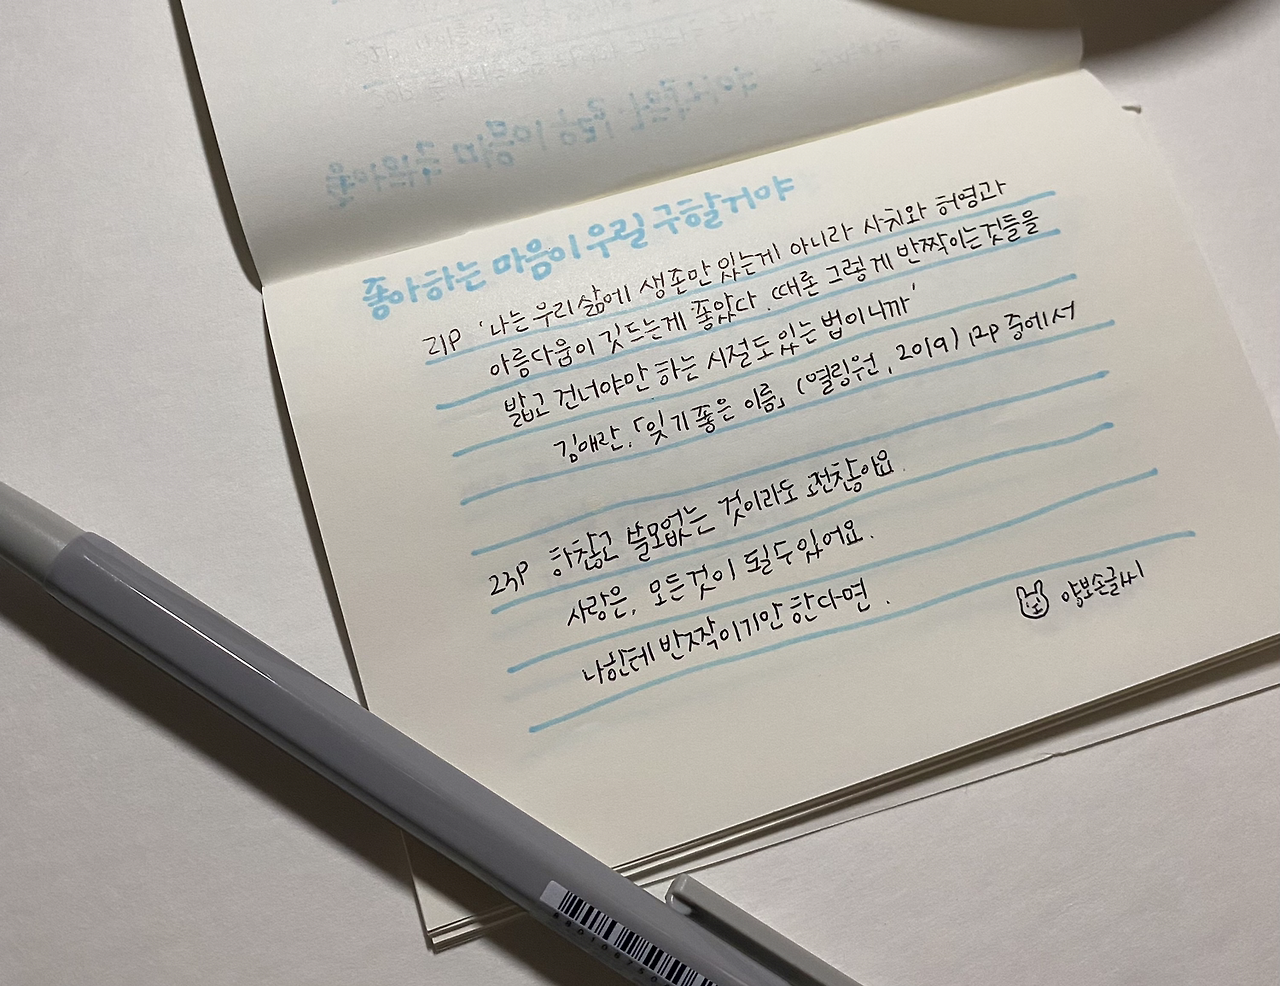 좋아하는 마음이 우릴 구할거야
21P '나는 우리 삶에 생존만 있는게 아니라 사치와 허영과
아름다움이 깃드는게 좋았다. (때론 그렇게 반짝이는것들을
밟고 건너야만 하는 시절도 있는 법이니까'
김애란, 「잊기 좋은 이름」 (열림원, 2019) 12p 중에서
23P 하찮고 쓸모없는 것이라도 괜찮아요.
사랑은, 모든것이 될수있어요.
나한테 반짝이기만 한다면.
양보손글씨